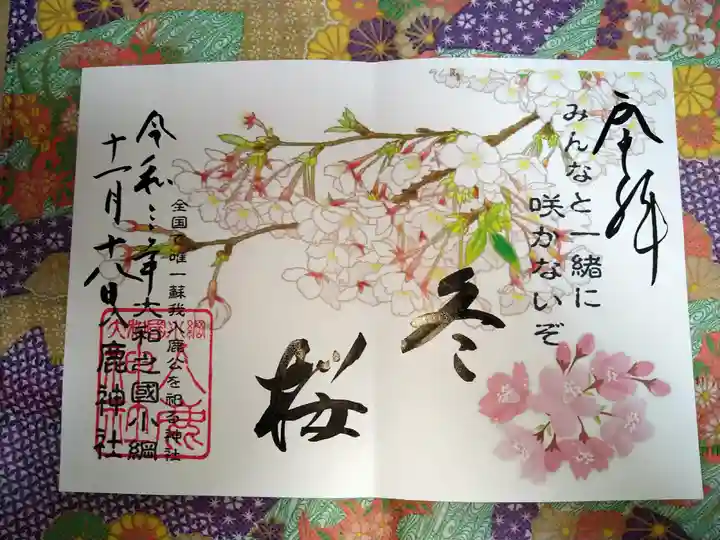 奉拝
みんなと一緒に
咲かないぞ
冬
桜
全国で唯一蘇我入鹿公を祀る神社
令和三年
十一月十六日
大和之國小綱
入鹿神社